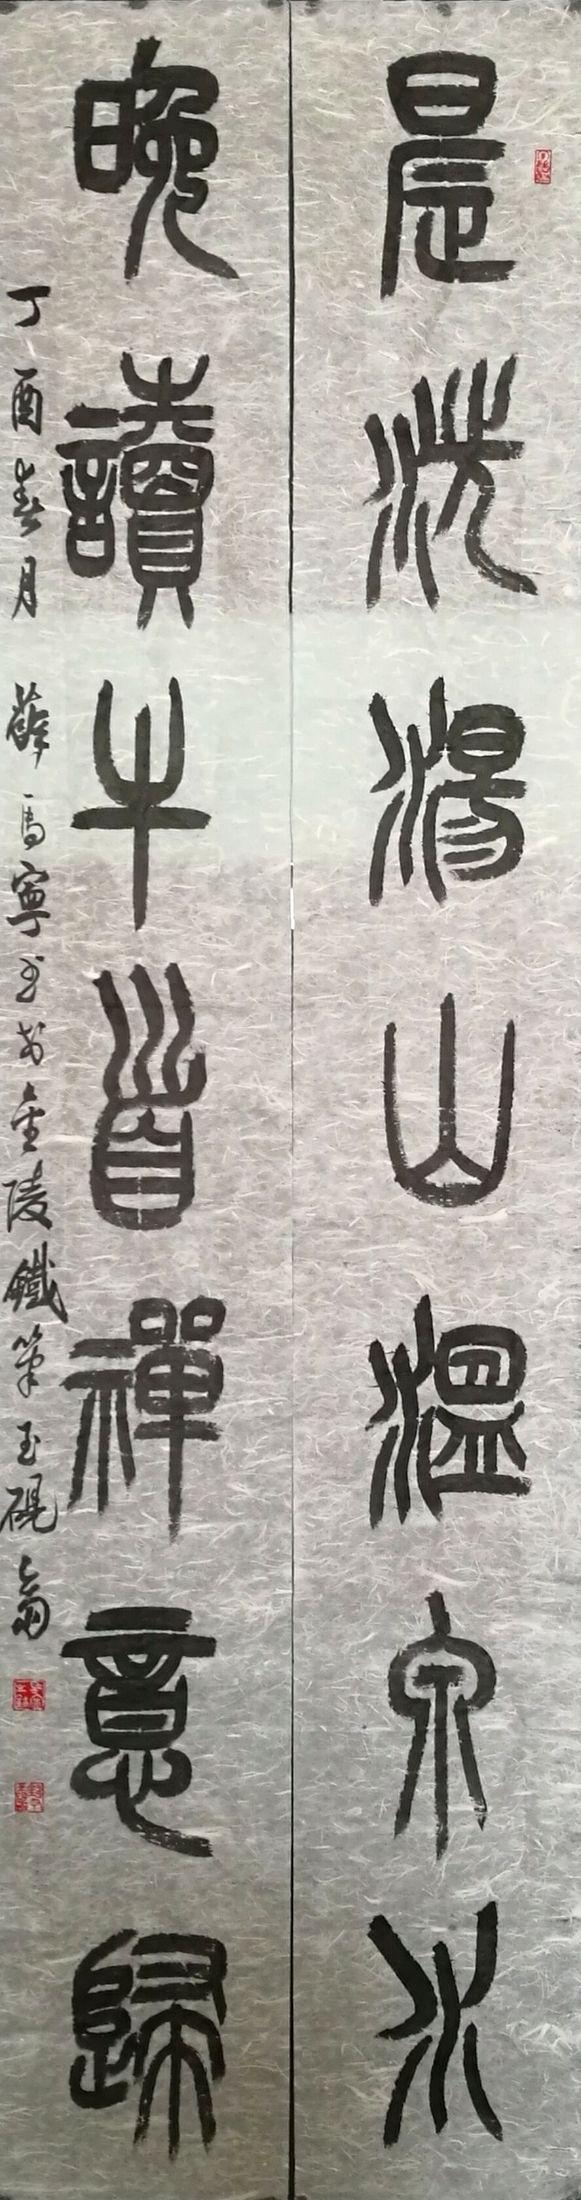 晨洗湯山温泉水
晚讀牛首禪意歸
丁酉春月 薛馬寧书於金陵鐵筆玉硯斋